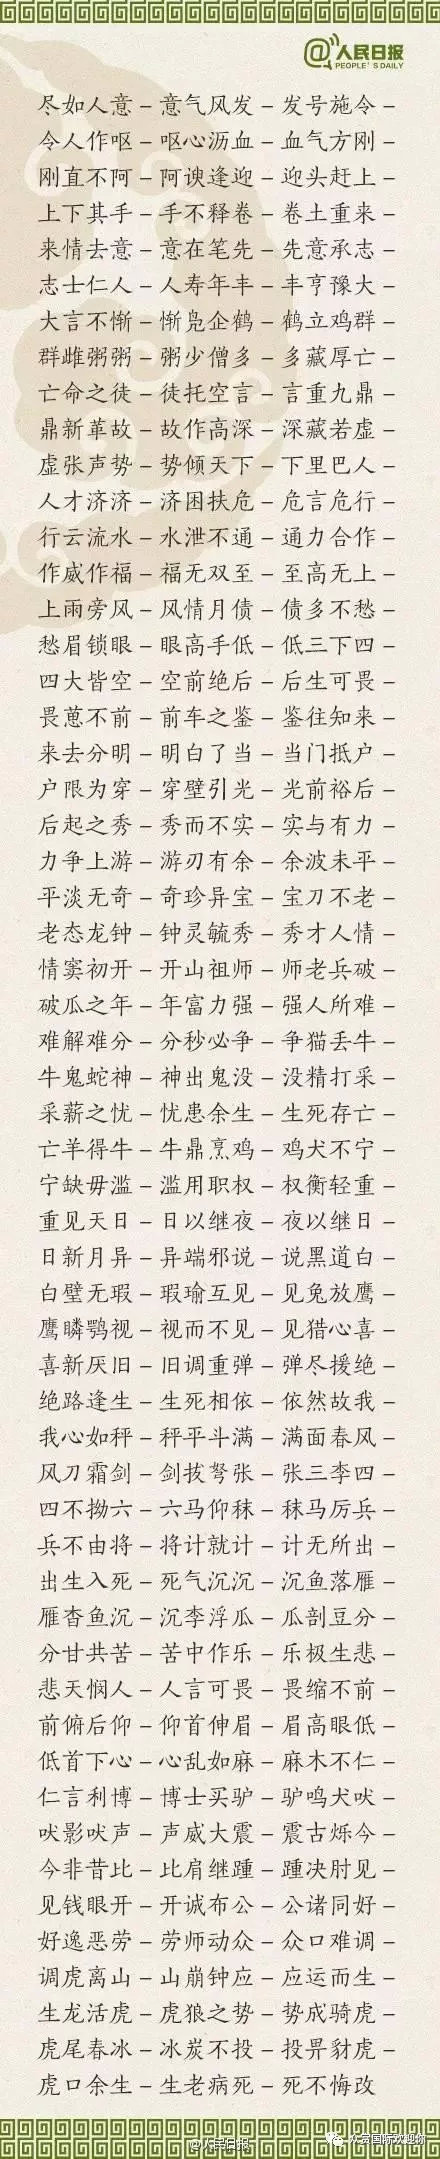 人民日报
PEOPLE'S DAILY
尽如人意－意气风发－发号施令－
令人作呕－呕心沥血－血气方刚－
刚直不阿－阿谀逢迎－迎头赶上－
上下其手－手不释卷－卷土重来－
来情去意－意在笔先－先意承志－
志士仁人－人寿年丰－丰亨豫大－
大言不惭－惭凫企鹤－鹤立鸡群－
群雌粥粥－粥少僧多－多藏厚亡－
亡命之徒－徒托空言－言重九鼎－
鼎新革故－故作高深－深藏若虚－
虚张声势－势倾天下－下里巴人－
人才济济－济困扶危－危言危行－
行云流水－水泄不通－通力合作－
作威作福－福无双至－至高无上－
上雨旁风－风情月债－债多不愁－
愁眉锁眼－眼高手低－低三下四－
四大皆空－空前绝后－后生可畏－
畏葸不前－前车之鉴－鉴往知来－
来去分明－明白了当－当门抵户－
户限为穿－穿壁引光－光前裕后－
后起之秀－秀而不实－实与有力－
力争上游－游刃有余－余波未平－
平淡无奇－奇珍异宝－宝刀不老－
老态龙钟－钟灵毓秀－秀才人情－
情窦初开－开山祖师－师老兵破－
破瓜之年－年富力强－强人所难－
难解难分－分秒必争－争猫丢牛－
牛鬼蛇神－神出鬼没－没精打采－
采薪之忧－忧患余生－生死存亡－
亡羊得牛－牛鼎烹鸡－鸡犬不宁－
宁缺毋滥－滥用职权－权衡轻重－
重见天日－日以继夜－夜以继日－
日新月异－异端邪说－说黑道白－
白璧无瑕－瑕瑜互见－见兔放鹰－
鹰瞵鹗视－视而不见－见猎心喜－
喜新厌旧－旧调重弹－弹尽援绝－
绝路逢生－生死相依－依然故我－
我心如秤－秤平斗满－满面春风－
风刀霜剑－剑拔弩张－张三李四－
四不拗六－六马仰秣－秣马厉兵－
兵不由将－将计就计－计无所出－
出生入死－死气沉沉－沉鱼落雁－
雁杳鱼沉－沉李浮瓜－瓜剖豆分－
分甘共苦－苦中作乐－乐极生悲－
悲天悯人－人言可畏－畏缩不前－
前俯后仰－仰首伸眉－眉高眼低－
低首下心－心乱如麻－麻木不仁－
仁言利博－博士买驴－驴鸣犬吠－
吠影吠声－声威大震－震古烁今－
今非昔比－比肩继踵－踵决肘见－
见钱眼开－开诚布公－公诸同好－
好逸恶劳－劳师动众－众口难调－
调虎离山－山崩钟应－应运而生－
生龙活虎－虎狼之势－势成骑虎－
虎尾春冰－冰炭不投－投畀豺虎－
虎口余生－生老病死－死不悔改
@人民日报
众赏国际欢迎你